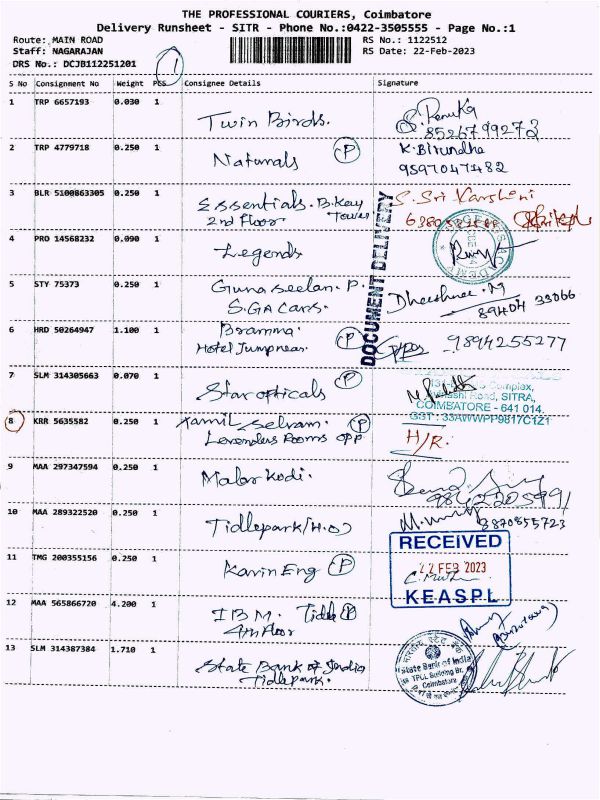 THE PROFESSIONAL COURIERS, Coimbatore
Delivery Runsheet - SITR - Phone No.:0422-3505555 - Page No.:1
Route: MAIN ROAD RS No.: 1122512
Staff: NAGARAJAN RS Date: 22-Feb-2023
DRS No.: DCJB112251201 1
S No Consignment No Weight PCS Consignee Details Signature
1 TRP 6657193 0.030 1 Twin Birds. S. Renuka
8526799273
2 TRP 4779718 0.250 1 Naturals P K. Birundha
9597047482
3 BLR 5100863305 0.250 1 Essentials. B. Key Tower
2nd Floor S. Sri Varshini
DOCUMENT DELIVERY
4 PRO 14568232 0.090 1 Legends
5 STY 75373 0.250 1 Guna seelan. P.
S.GA Cars. Dheeshnee. M
89404 33066
6 HRD 50264947 1.100 1 Bramma.
Hotel Jumpnear. P 9894255277
7 SLM 314305663 0.070 1 Star opticals P
Complex,
Road, SITRA,
COIMBATORE - 641 014.
GST: 33AWWPP9817C1Z1
8 KRR 5635582 0.250 1 Tamil Selvam. P
Levenders Rooms opp H/R.
9 MAA 297347594 0.250 1 Malar Kodi. 9842205991
10 MAA 289322520 0.250 1 Tidlepark/H.O) 8870855723
11 TMG 200355156 0.250 1 Kavin Eng P
RECEIVED
22 FEB 2023
KEASPL
12 MAA 565866720 4.200 1 IBM. Tidle P
4th Floor
13 SLM 314387384 1.710 1 State Bank of India
Tidlepark.
State Bank of India
TPCL Building Br.
Coimbatore